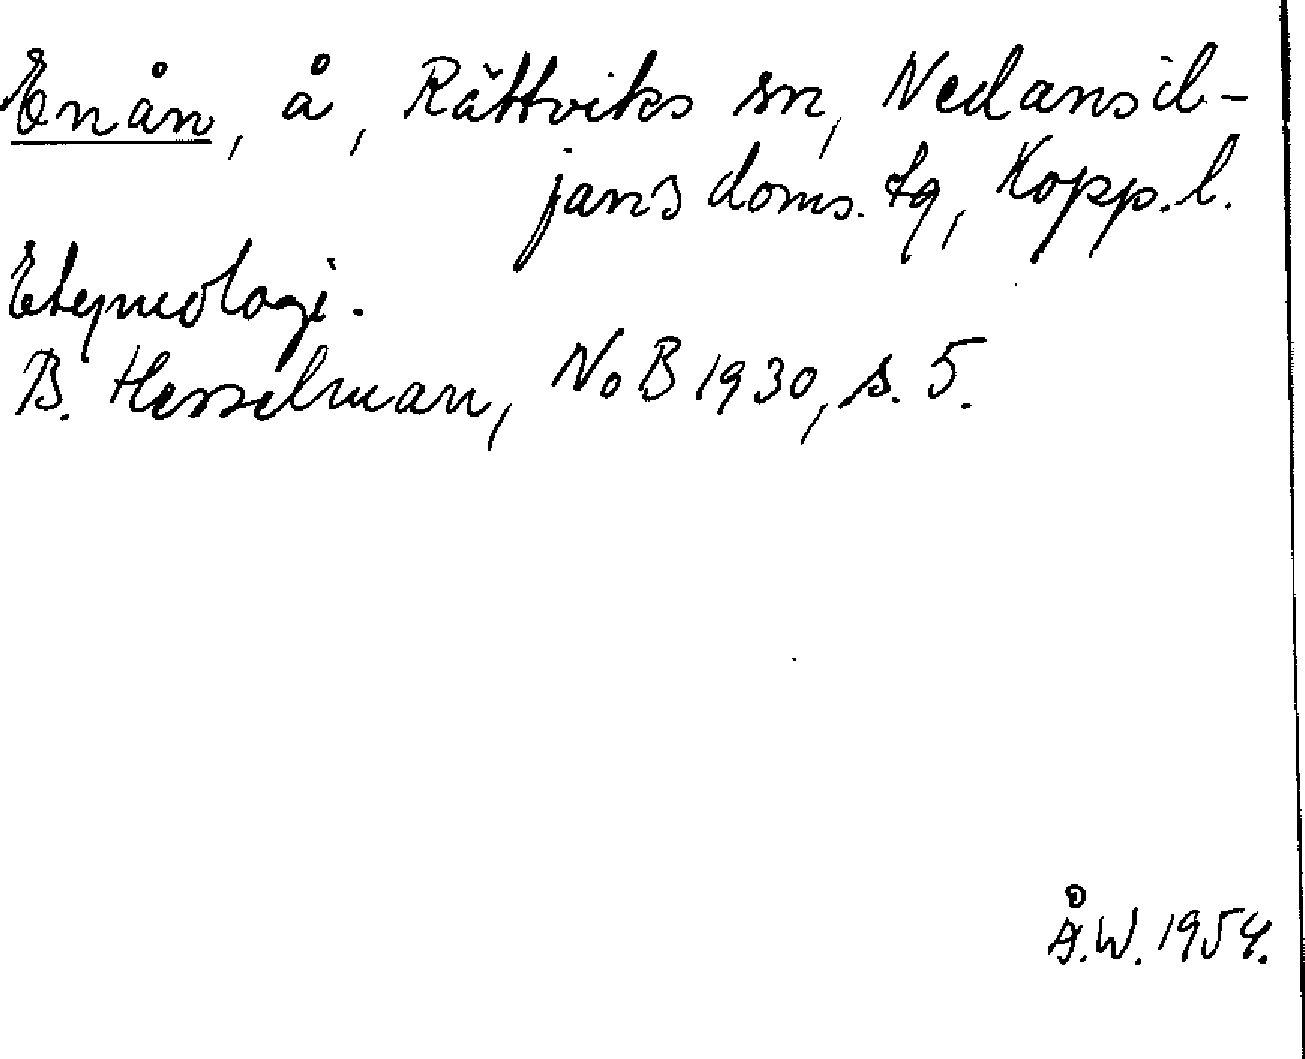 Enån, å, Rättviks sn, Nedansil-
jans doms. tg, Kopp. l.
Etymologi.
B. Hesselman, NoB 1930, s. 5.
Å.W. 1954.